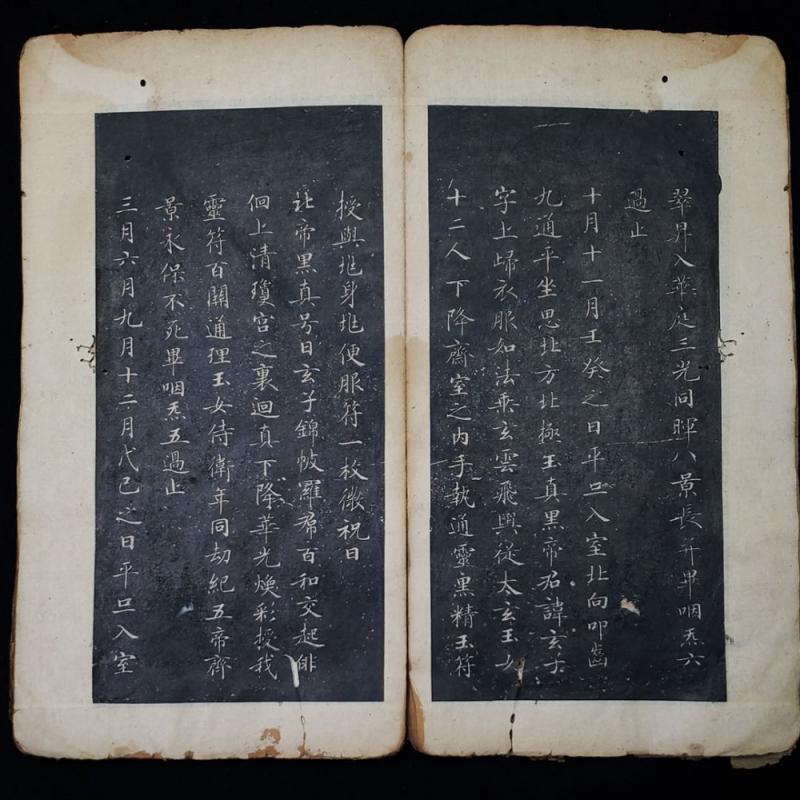 翠昇入華庭三光同暉八景長并畢咽炁六
過止
十月十一月壬癸之日平旦入室北向叩齒
九通平坐思北方北極玉真黑帝君諱玄子
字上歸衣服如法乘玄雲飛輿從太玄玉女
十二人下降齋室之内手執通靈黑精玉符
授與兆身兆便服符一枚微祝曰
北帝黑真号曰玄子錦帔羅帬百和交起俳
徊上清瓊宮之裏迴真下降華光煥彩授我
靈符百關通理玉女侍衛年同劫紀五帝齊
景永保不死畢咽炁五過止
三月六月九月十二月戊己之日平旦入室